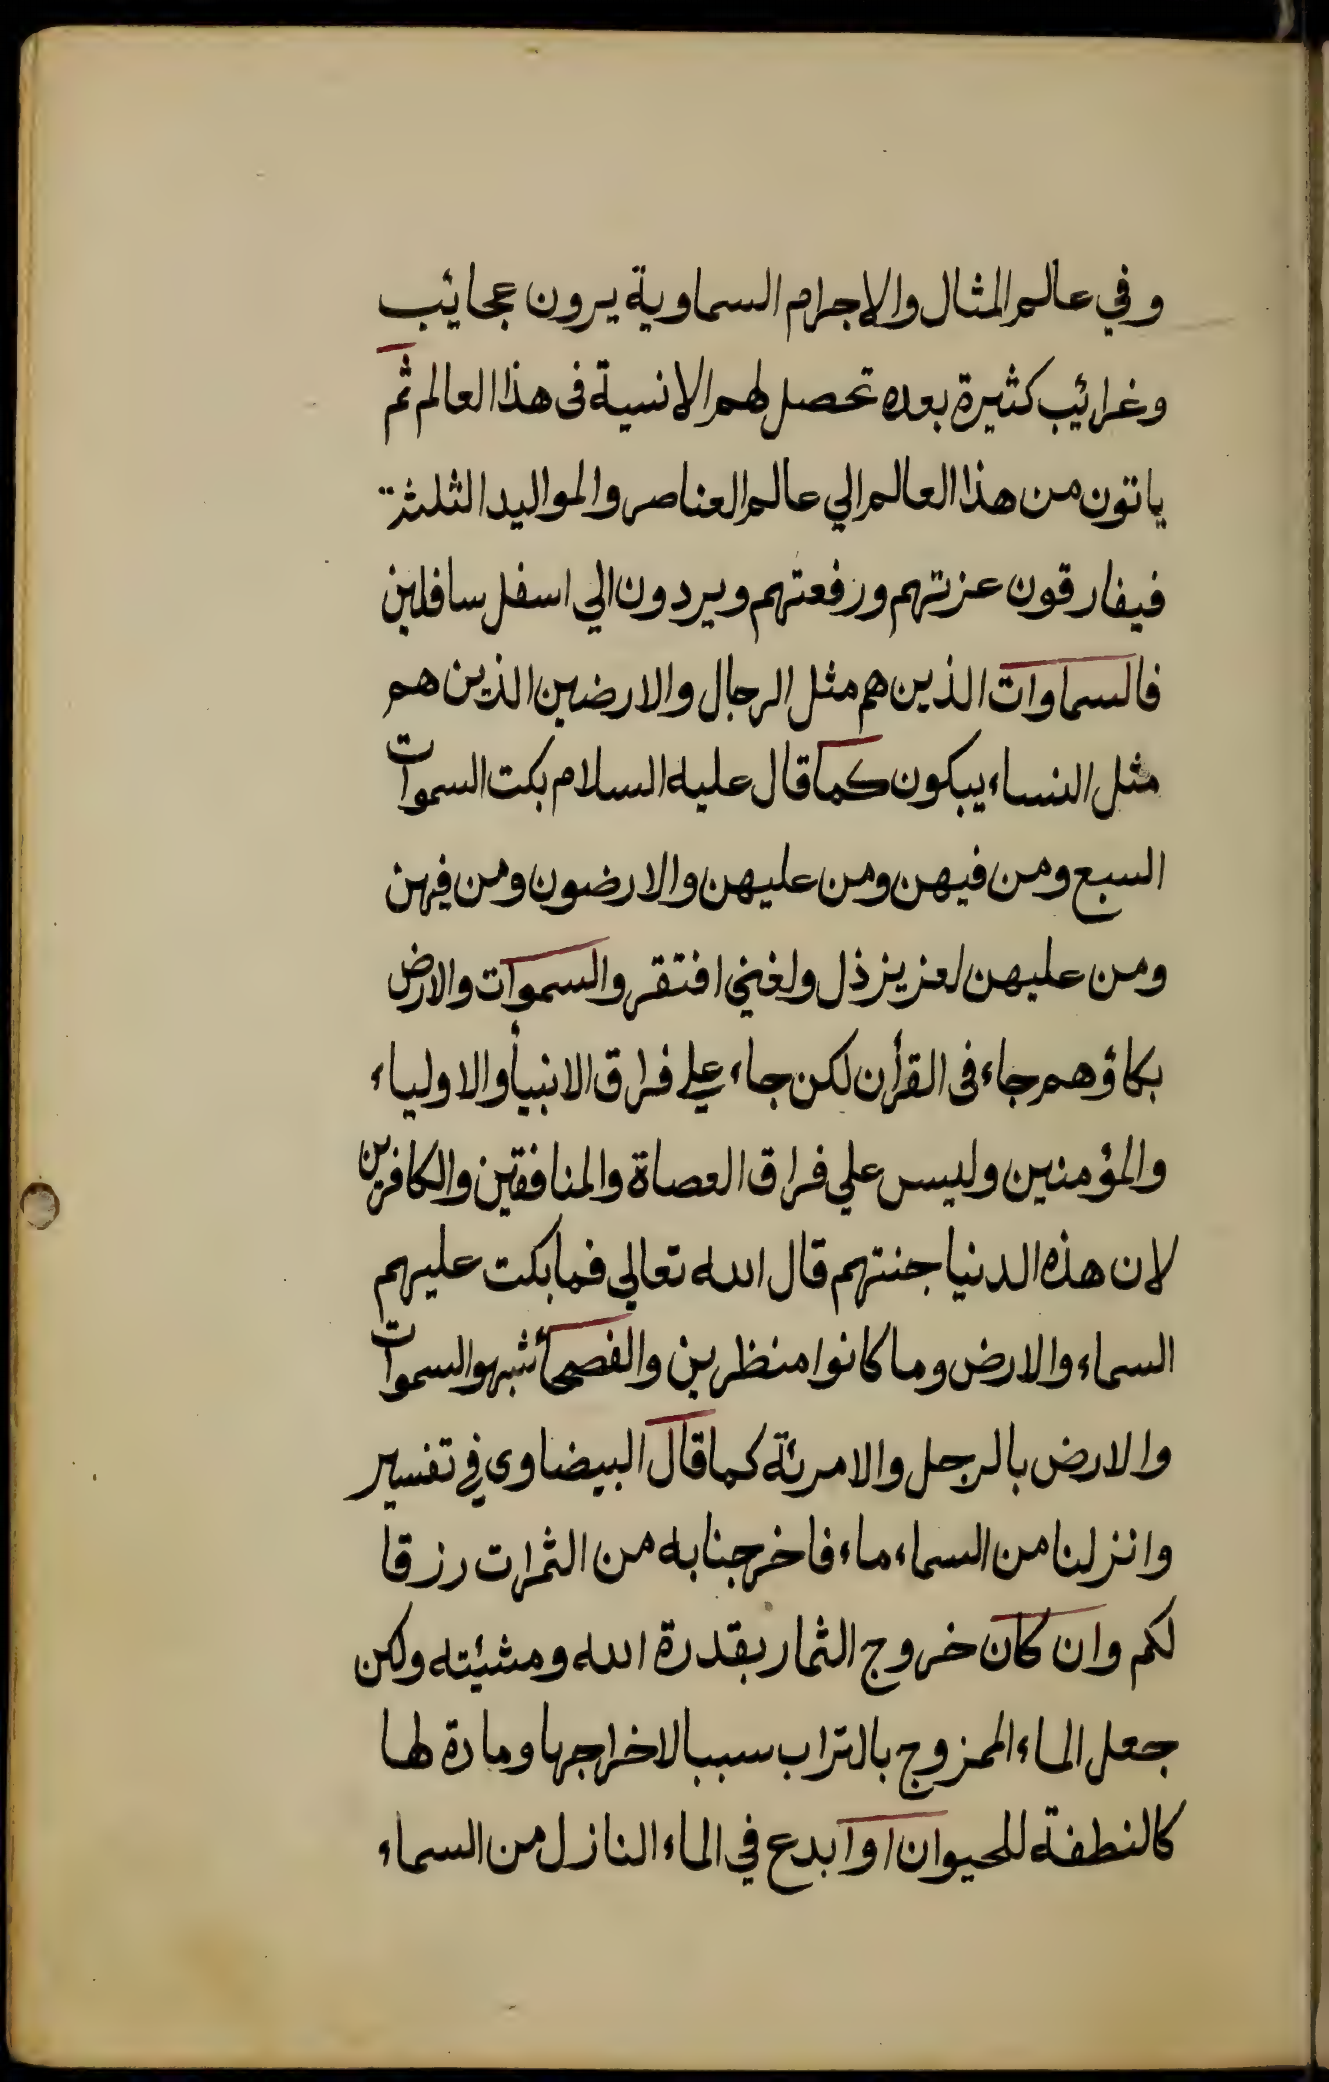 وفي عالم المثال والاجرام السماوية يرون عجايئب
وغرائيب كثيرة بعده تحصل لهم الانسية فى هذا العالم ثم
ياتون من هذا العالم الي عالم العناصر والمواليد الثلثة
فيفارقون عزتهم ورفعتهم ويردون الي اسفل سافلين
فالسماوات الذين هم مثل الرجال والارضين الذين هم
مثل النساء يبكون كما قال عليه السلام بكت السموات
السبع ومن فيهن ومن عليهن والارضون ومن فيهن
ومن عليهن لعزيز ذل ولغني افتقر والسموات والارض
بكاؤهم جاء فى القرأن لكن جاء علي فراق الانبيأ والاولياء
والمؤمنين وليس علي فراق العصاة والمنافقين والكافرين
لان هذه الدنيا جنتهم قال الله تعالي فما بكت عليهم
السماء والارض وما كانوا منظرين والفصحأ شبهوا السموات
والارض بالرجل والامرئة كما قال البيضاوى في تفسير
وانزلنا من السماء ماء فاخرجنا به من الثمرات رزقا
لكم وان كان خروج الثمار بقدرة الله ومشيئته ولكن
جعل الماء الممزوج بالتراب سببا لاخراجها ومادة لها
كالنطفة للحيوان او ابدع في الماء النازل من السماء